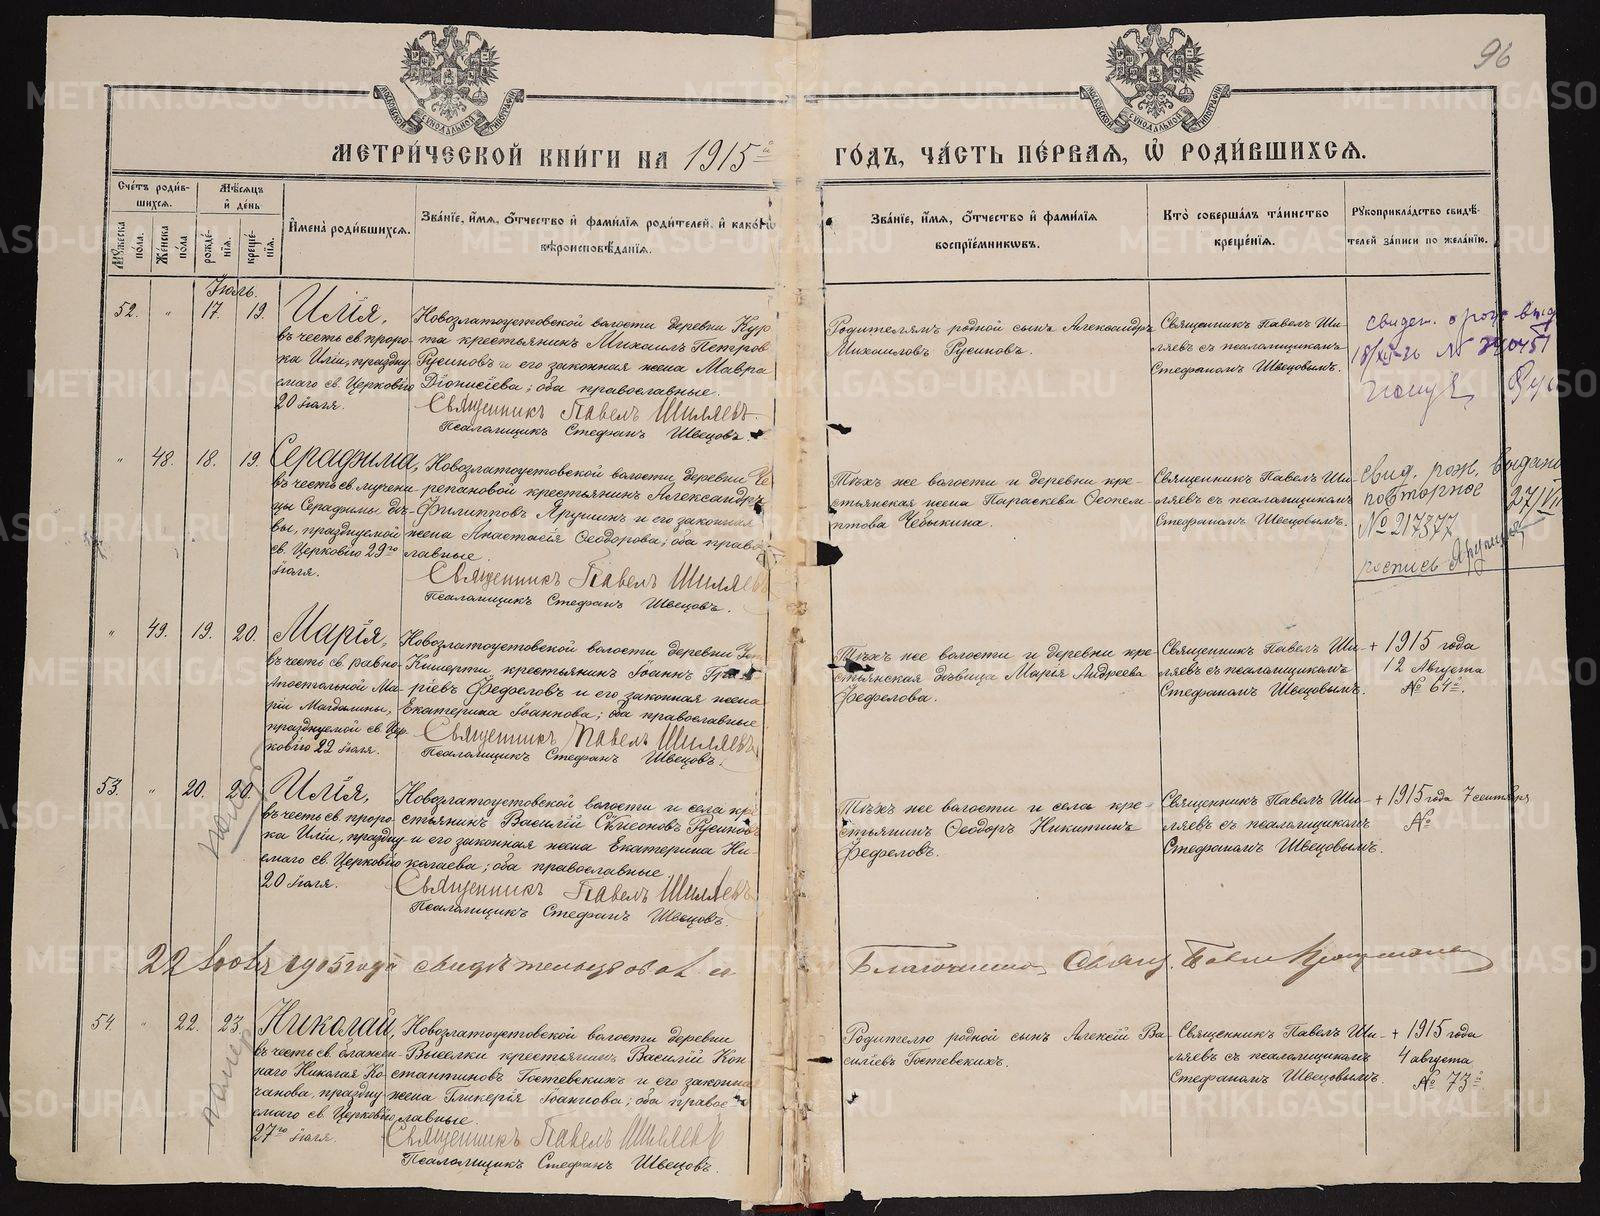 96
МОСКОВСКОЙ СѴНОДАЛЬНОЙ ТИПОГРАФІИ
МОСКОВСКОЙ СѴНОДАЛЬНОЙ ТИПОГРАФІИ
МЕТРИ́ЧЕСКОЙ КНИ́ГИ НА 1915й
ГО́ДЪ, ЧА́СТЬ ПЕ́РВАЯ, Ѡ҆ РОДИ́ВШИХСѦ.
Сче́тъ роди́в-
шихсѧ.
Мѣ́сѧцъ
и҆ де́нь
Му́жеска
по́ла.
Же́нска
по́ла
рожде́-
нїѧ.
креще́-
нїѧ.
И҆мена̀ роди́вшихсѧ.
Зва́нїе, и҆́мѧ, ѻ҆́тчество и҆ фами́лїѧ роди́телей, и҆ како́гѡ
вѣроисповѣ́данїѧ.
Зва́нїе, и҆́мѧ, ѻ҆́тчество и҆ фами́лїѧ
воспрїе́мникѡвъ.
Кто̀ соверша́лъ та́инство
креще́нїѧ.
Рꙋкоприкла́дство свидѣ́-
телей за́писи по жела́нїю.
Іюль.
52. " 17. 19.
Илія,
въ честь св. проро-
ка Иліи, праздну-
емаго св. Церковію
20 іюля.
Новозлатоустовской волости деревни Кур-
та крестьянинъ Михаилъ Петровъ
Русиновъ и его законная жена Мавра
Діонисіева; оба православные.
Священникъ Павелъ Шиляевъ.
Псаломщикъ Стефанъ Швецовъ.
Родителямъ родной сынъ Александръ
Михаиловъ Русиновъ.
Священникъ Павелъ Ши-
ляевъ съ псаломщикомъ
Стефаномъ Швецовымъ.
свидет. о рожд выд
18/XI-26 №
" 48. 18. 19.
Серафима,
въ честь св. мучени-
цы Серафимы дѣ-
вы, празднуемой
св. Церковію 29го
іюля.
Новозлатоустовской волости деревни Че-
репановой крестьянинъ Александръ
Филипповъ Ярушинъ и его законная
жена Анастасія Ѳеодорова; оба право-
славные.
Священникъ Павелъ Шиляевъ
Псаломщикъ Стефанъ Швецовъ.
Тѣхъ же волости и деревни кре-
стьянская жена Параскева Ѳеопем-
птова Чебыкина.
Священникъ Павелъ Ши-
ляевъ съ псаломщикомъ
Стефаномъ Швецовымъ.
свид. рож. выдано
повторное 27/VII
№ 217377
роспись
" 49. 19. 20.
Марія,
въ честь св. равно-
Апостольной Ма-
ріи Магдалины,
празднуемой св. Цер-
ковію 22 іюля.
Новозлатоустовской волости деревни
Кишерти крестьянинъ Іоаннъ
Фефеловъ и его законная жена
Екатерина Іоаннова; оба православные
Священникъ Павелъ Шиляевъ
Псаломщикъ Стефанъ Швецовъ.
Тѣхъ же волости и деревни кре-
стьянская дѣвица Марія Андреева
Фефелова.
Священникъ Павелъ Ши-
ляевъ съ псаломщикомъ
Стефаномъ Швецовымъ.
+ 1915 года
12 Августа
№ 64й.
53. " 20. 20.
Илія,
въ честь св. проро-
ка Иліи, праздну-
емаго св. Церковію
20 іюля.
Новозлатоустовской волости и села кре-
стьянинъ Василій Сѵмеоновъ Русиновъ
и его законная жена Екатерина Ни-
колаева; оба православные.
Священникъ Павелъ Шиляевъ
Псаломщикъ Стефанъ Швецовъ.
Тѣхъ же волости и села кре-
стьянинъ Ѳеодоръ Никитинъ
Фефеловъ.
Священникъ Павелъ Ши-
ляевъ съ псаломщикомъ
Стефаномъ Швецовымъ.
+ 1915 года 7 сентября
№
22 года свидѣтельствовалъ
Благочинный Свящ. Павелъ
54. " 22. 23.
померъ
Николай,
въ честь св. блажен-
наго Николая Ко-
чанова, праздну-
емаго св. Церковію
27го іюля.
Новозлатоустовской волости деревни
Выселки крестьянинъ Василій Кон-
стантиновъ Гостевскихъ и его законная
жена Гликерія Іоаннова; оба право-
славные.
Священникъ Павелъ Шиляевъ
Псаломщикъ Стефанъ Швецовъ.
Родителю родной сынъ Алексій Ва-
силіевъ Гостевскихъ.
Священникъ Павелъ Ши-
ляевъ съ псаломщикомъ
Стефаномъ Швецовымъ.
+ 1915 года
4 августа
№ 73й
METRIKI.GASO-URAL.RU